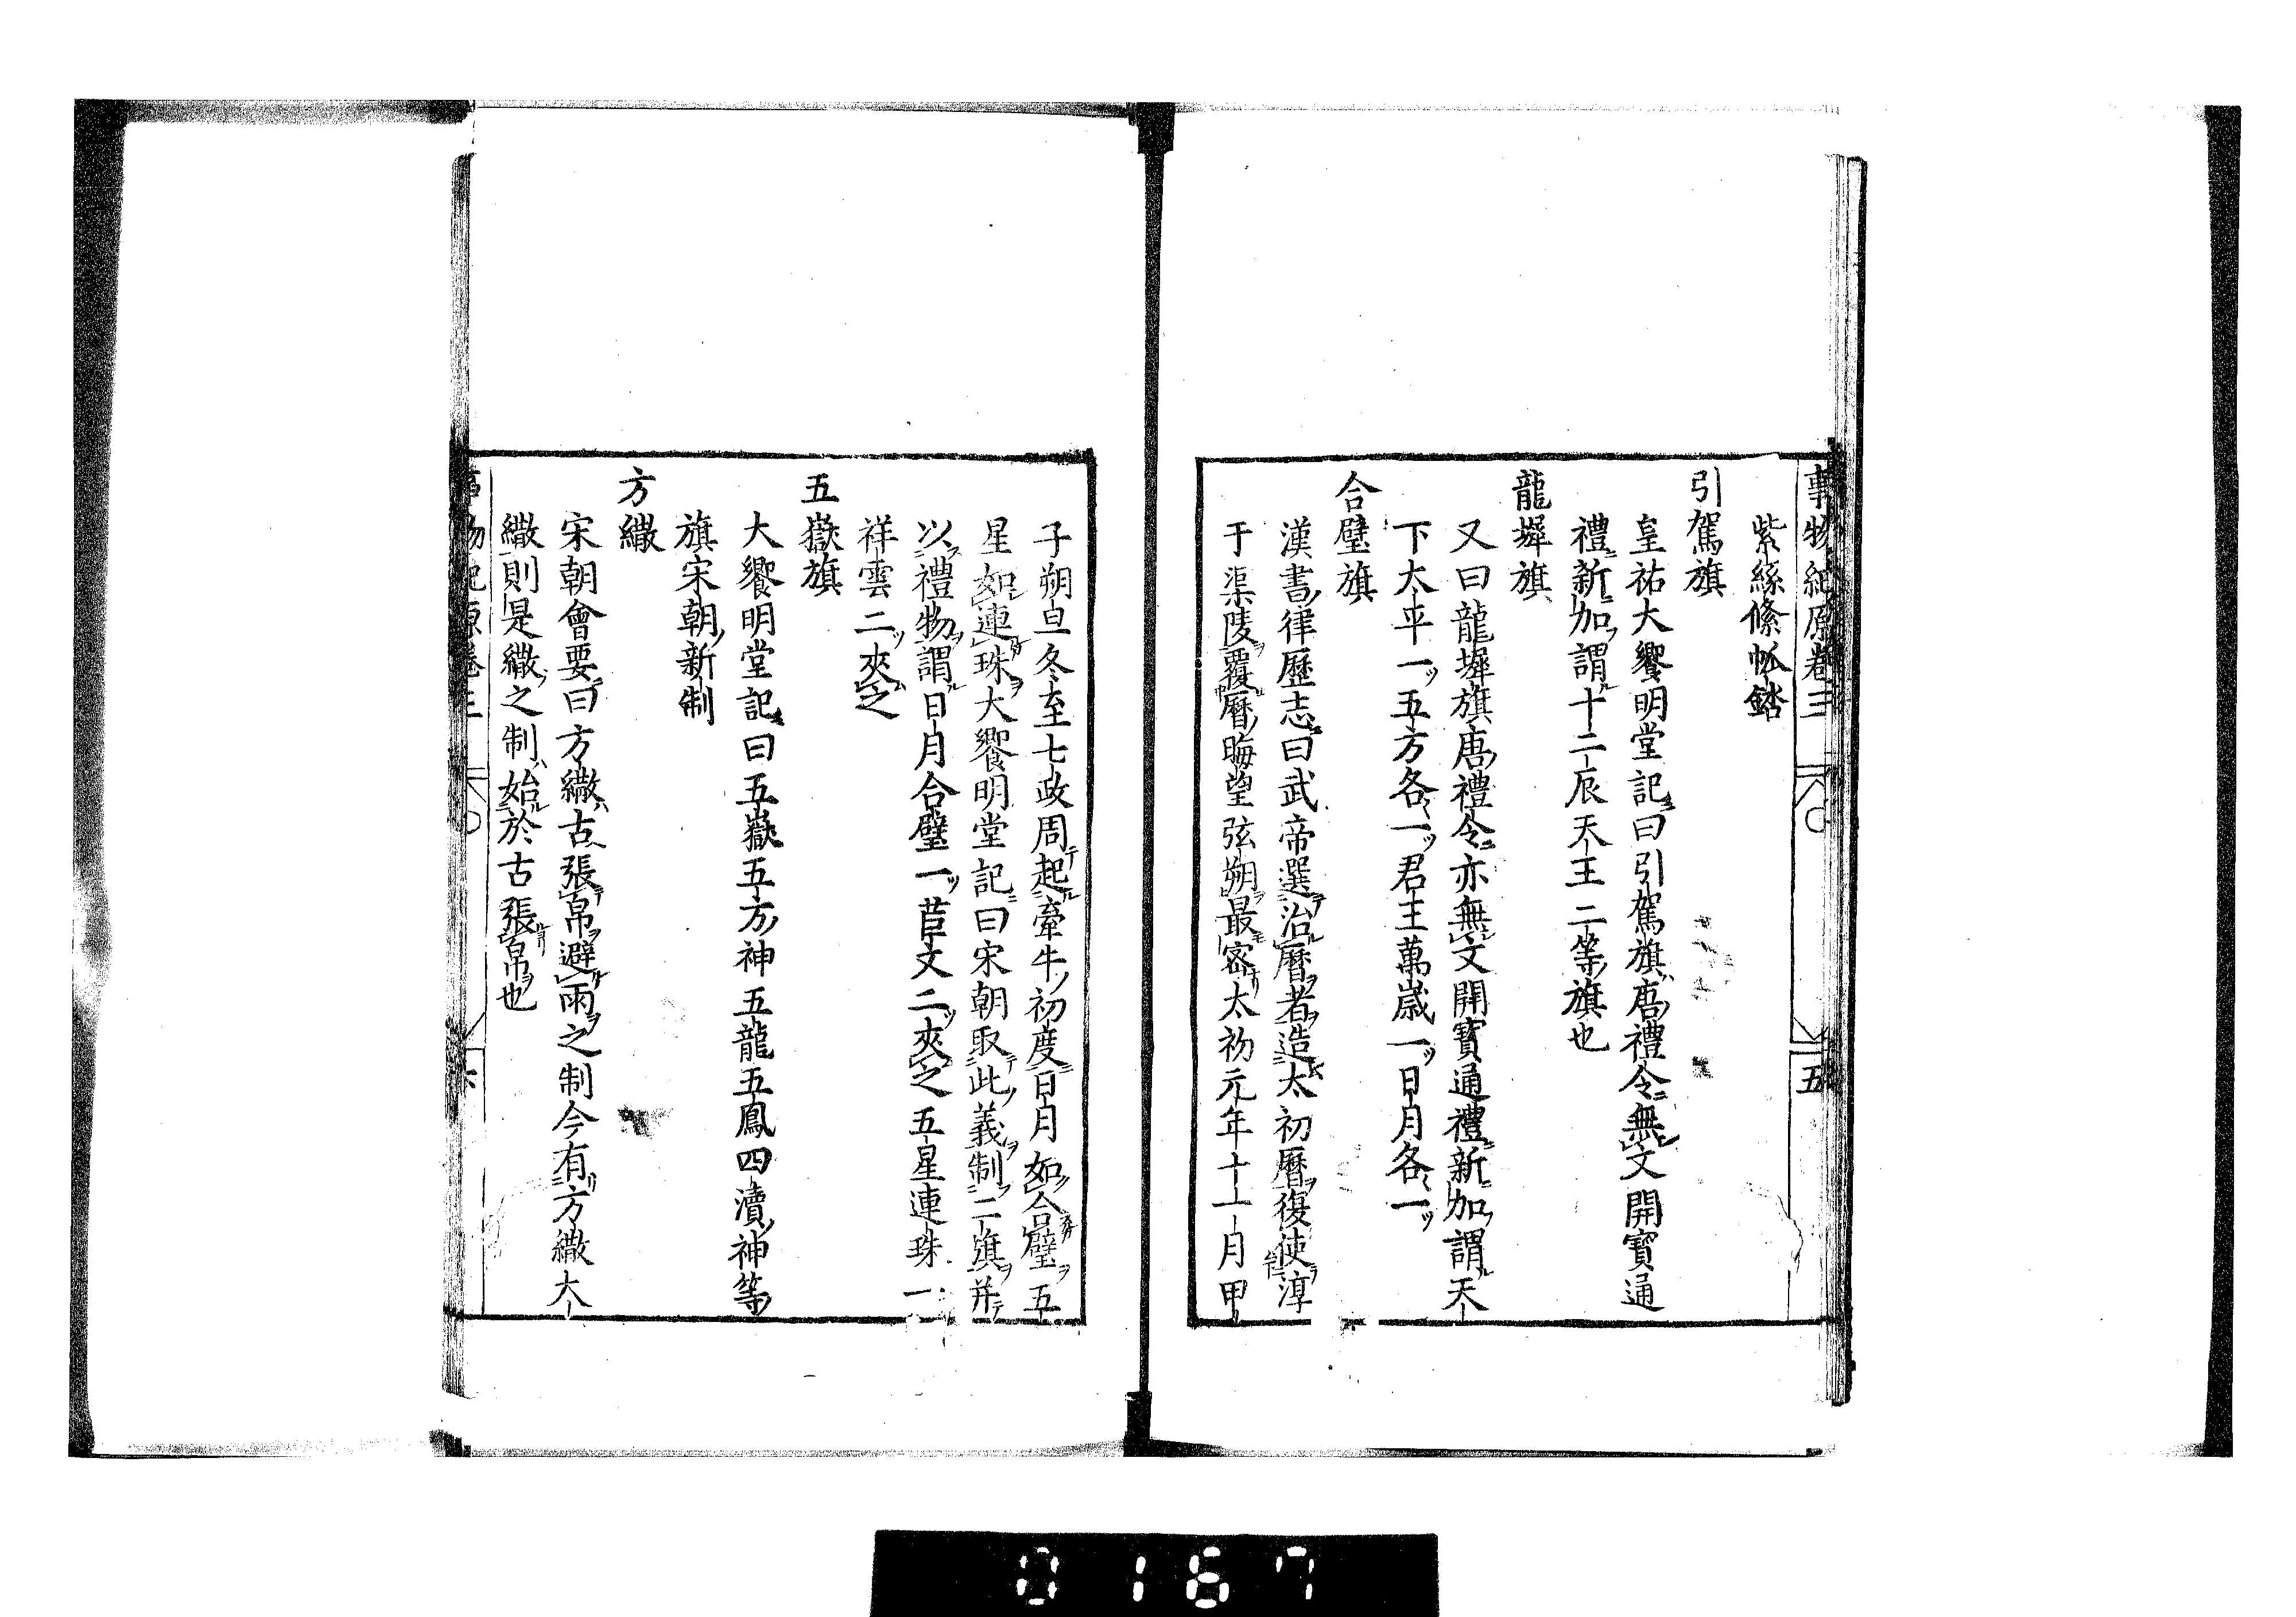 事物紀原卷三
五
紫絲絛帉錔
引駕旗
皇祐大饗明堂記曰引駕旗唐禮令無文開寳通
禮新加謂十二辰天王二等旗也
龍墀旗
又曰龍墀旗唐禮令亦無文開寳通禮新加謂天
下太平一五方各一君王萬歲一日月各一
合璧旗
漢書律歷志曰武帝選治曆者造太初曆復使淳
于渠陵覆曆晦望弦朔最密太初元年十一月甲
子朔旦冬至七政周起牽牛初度日月如合璧五
星如連珠大饗明堂記曰宋朝取此義制二旗并
以禮物謂日月合璧一苣文二夾之五星連珠一
祥雲二夾之
五嶽旗
大饗明堂記曰五嶽五方神五龍五鳳四瀆神等
旗宋朝新制
方繖
宋朝會要曰方繖古張帛避雨之制今有方繖大
繖則是繖之制始於古張帛也
事物紀原卷三
六
0167